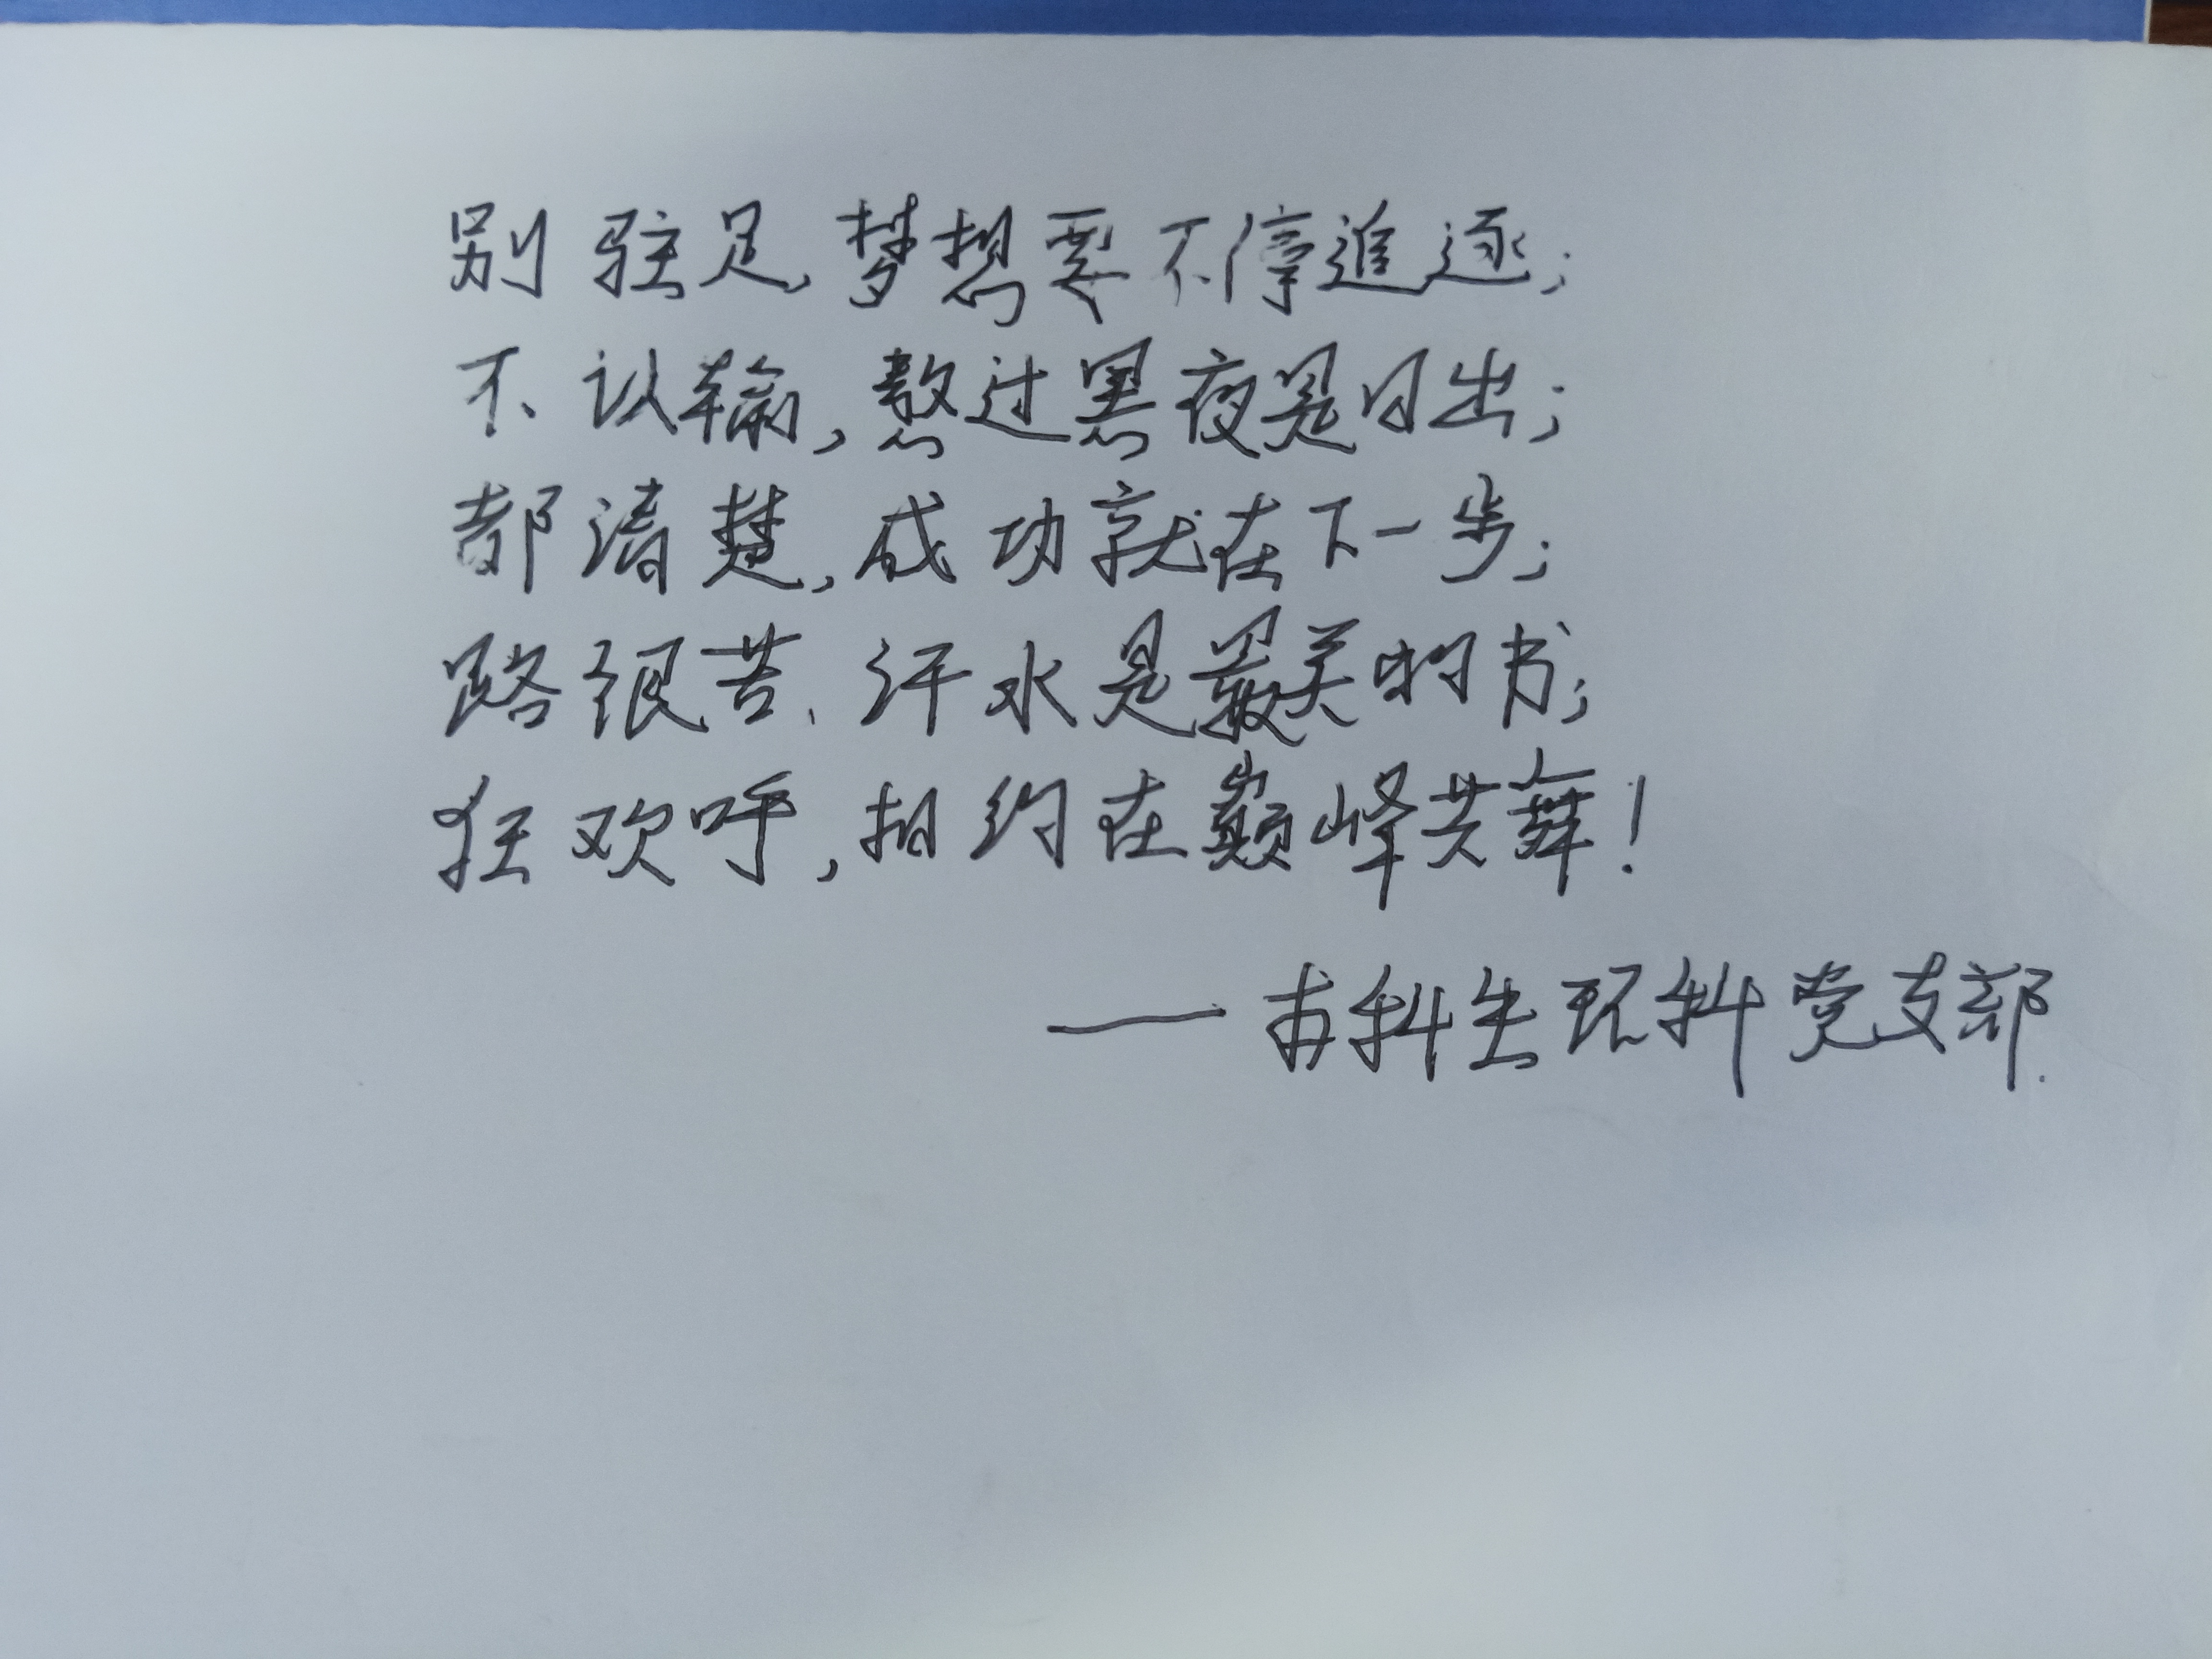 别驻足,梦想要不停追逐;
不认输,熬过黑夜是日出;
都清楚,成功就在下一步;
路很苦、汗水是最美的书;
狂欢呼,相约在巅峰共舞!
——本科生环科党支部.